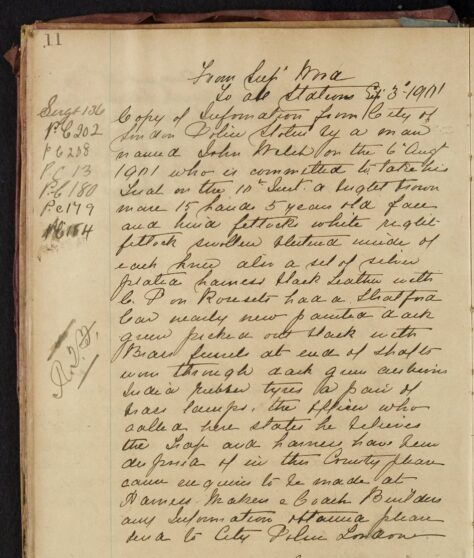 11
From Supt Word
To all Stations Sep 3rd 1901
Copy of Information from City of
London Police Stolen by a man
named John Welch on the 6th Augt
1901 who is committed to take his
Trial on the 10th Inst. a bright brown
mare 15 hands 5 years old face
and hind fetlocks white right
fetlock swollen blistered inside of
each knee also a set of silver
plated harness black leather with
C. P on Rosesets had a Stratford
Car nearly new painted dark
green picked out black with
Brass ferrels at end of shafts
worn through dark green cushions
India Rubber tyres a pair of
brass lamps. the officer who
called here states he believes
the Trap and harness have been
disposed of in this County please
cause enquiries to be made at
Harness Makers & Coach Builders
any Information obtained please
send to City Police London
Sergt 136
P C 202
P C 238
P C 13
P.C. 180
P.C 179
154